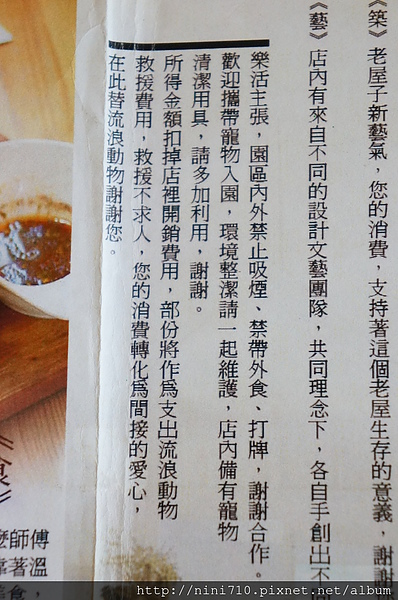 《築》老屋子新藝氣，您的消費，支持著這個老屋生存的意義，謝謝
《藝》店內有來自不同的設計文藝團隊，共同理念下，各自手創出不
樂活主張，園區內外禁止吸煙、禁帶外食、打牌，謝謝合作。
歡迎攜帶寵物入園，環境整潔請一起維護，店內備有寵物
清潔用具，請多加利用，謝謝。
所得金額扣掉店裡開銷費用，部份將作為支出流浪動物
救援費用，救援不求人，您的消費轉化為間接的愛心，
在此替流浪動物謝謝您。
師傅
著溫
http://nini710.pixnet.net/album